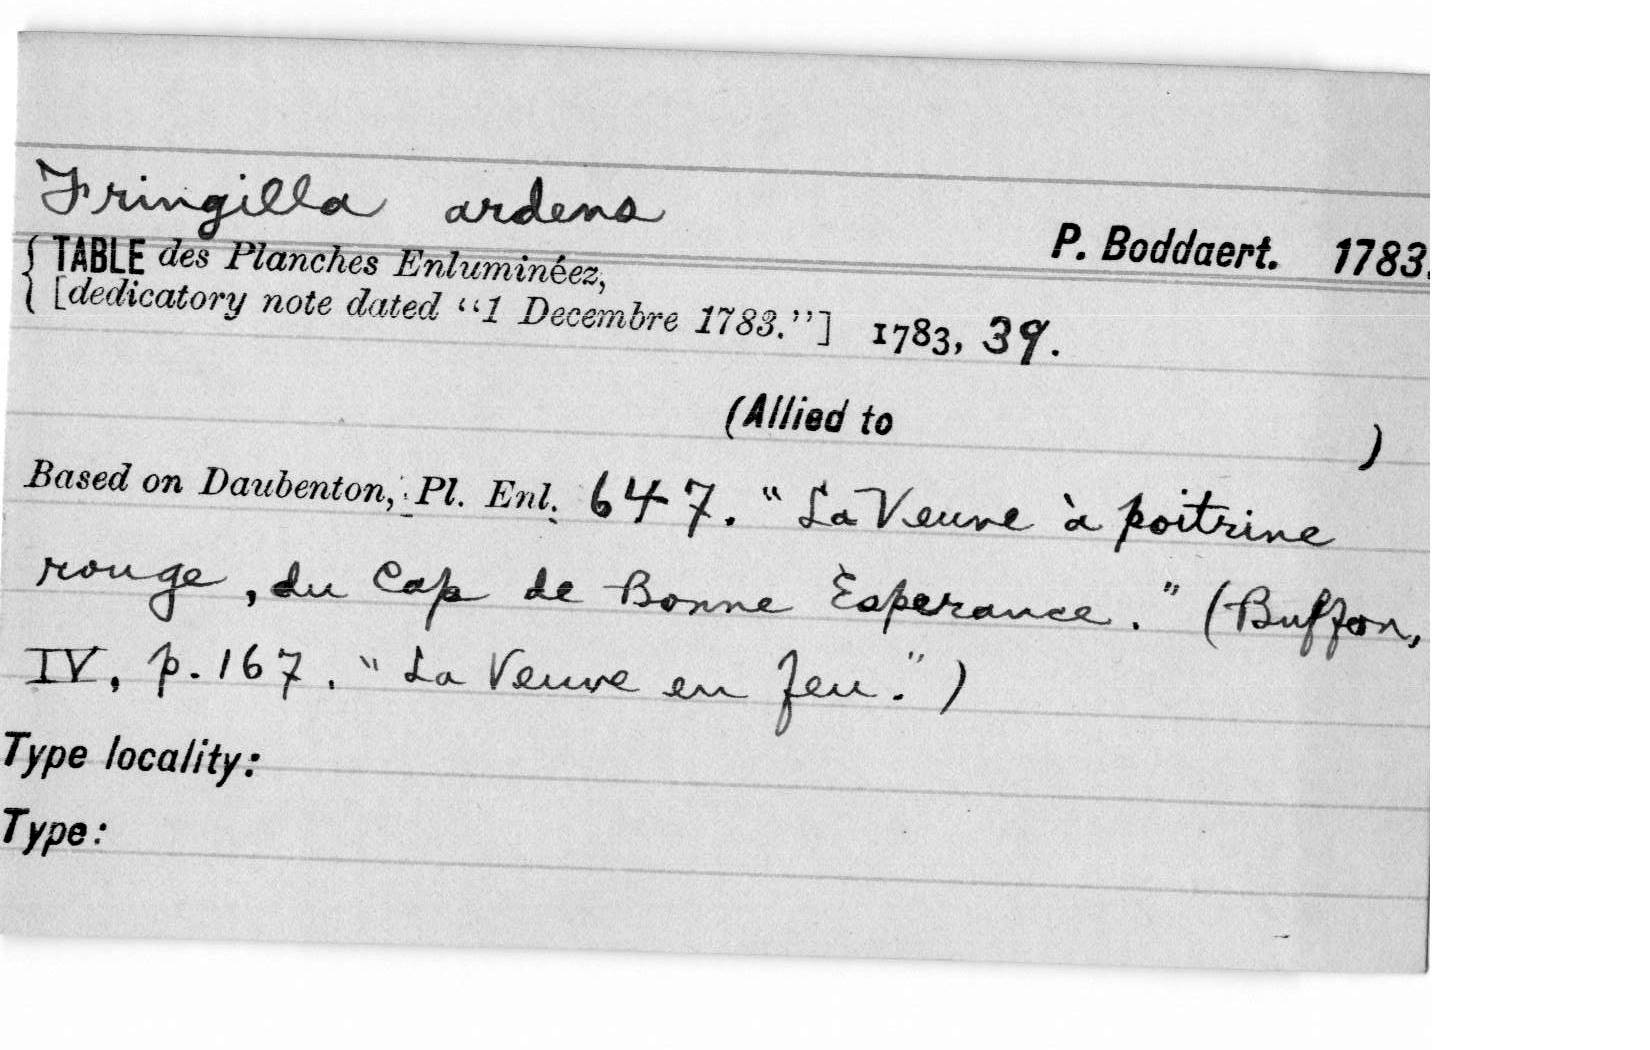 Fringilla ardens
P. Boddaert. 1783.
{ TABLE des Planches Enluminéez,
{ [dedicatory note dated “1 Decembre 1783.”] 1783, 39.
(Allied to )
Based on Daubenton, Pl. Enl. 647. "La Veuve à poitrine
rouge, du Cap de Bonne Èsperance." (Buffon,
IV, p. 167. "La Veuve en feu.")
Type locality:
Type: